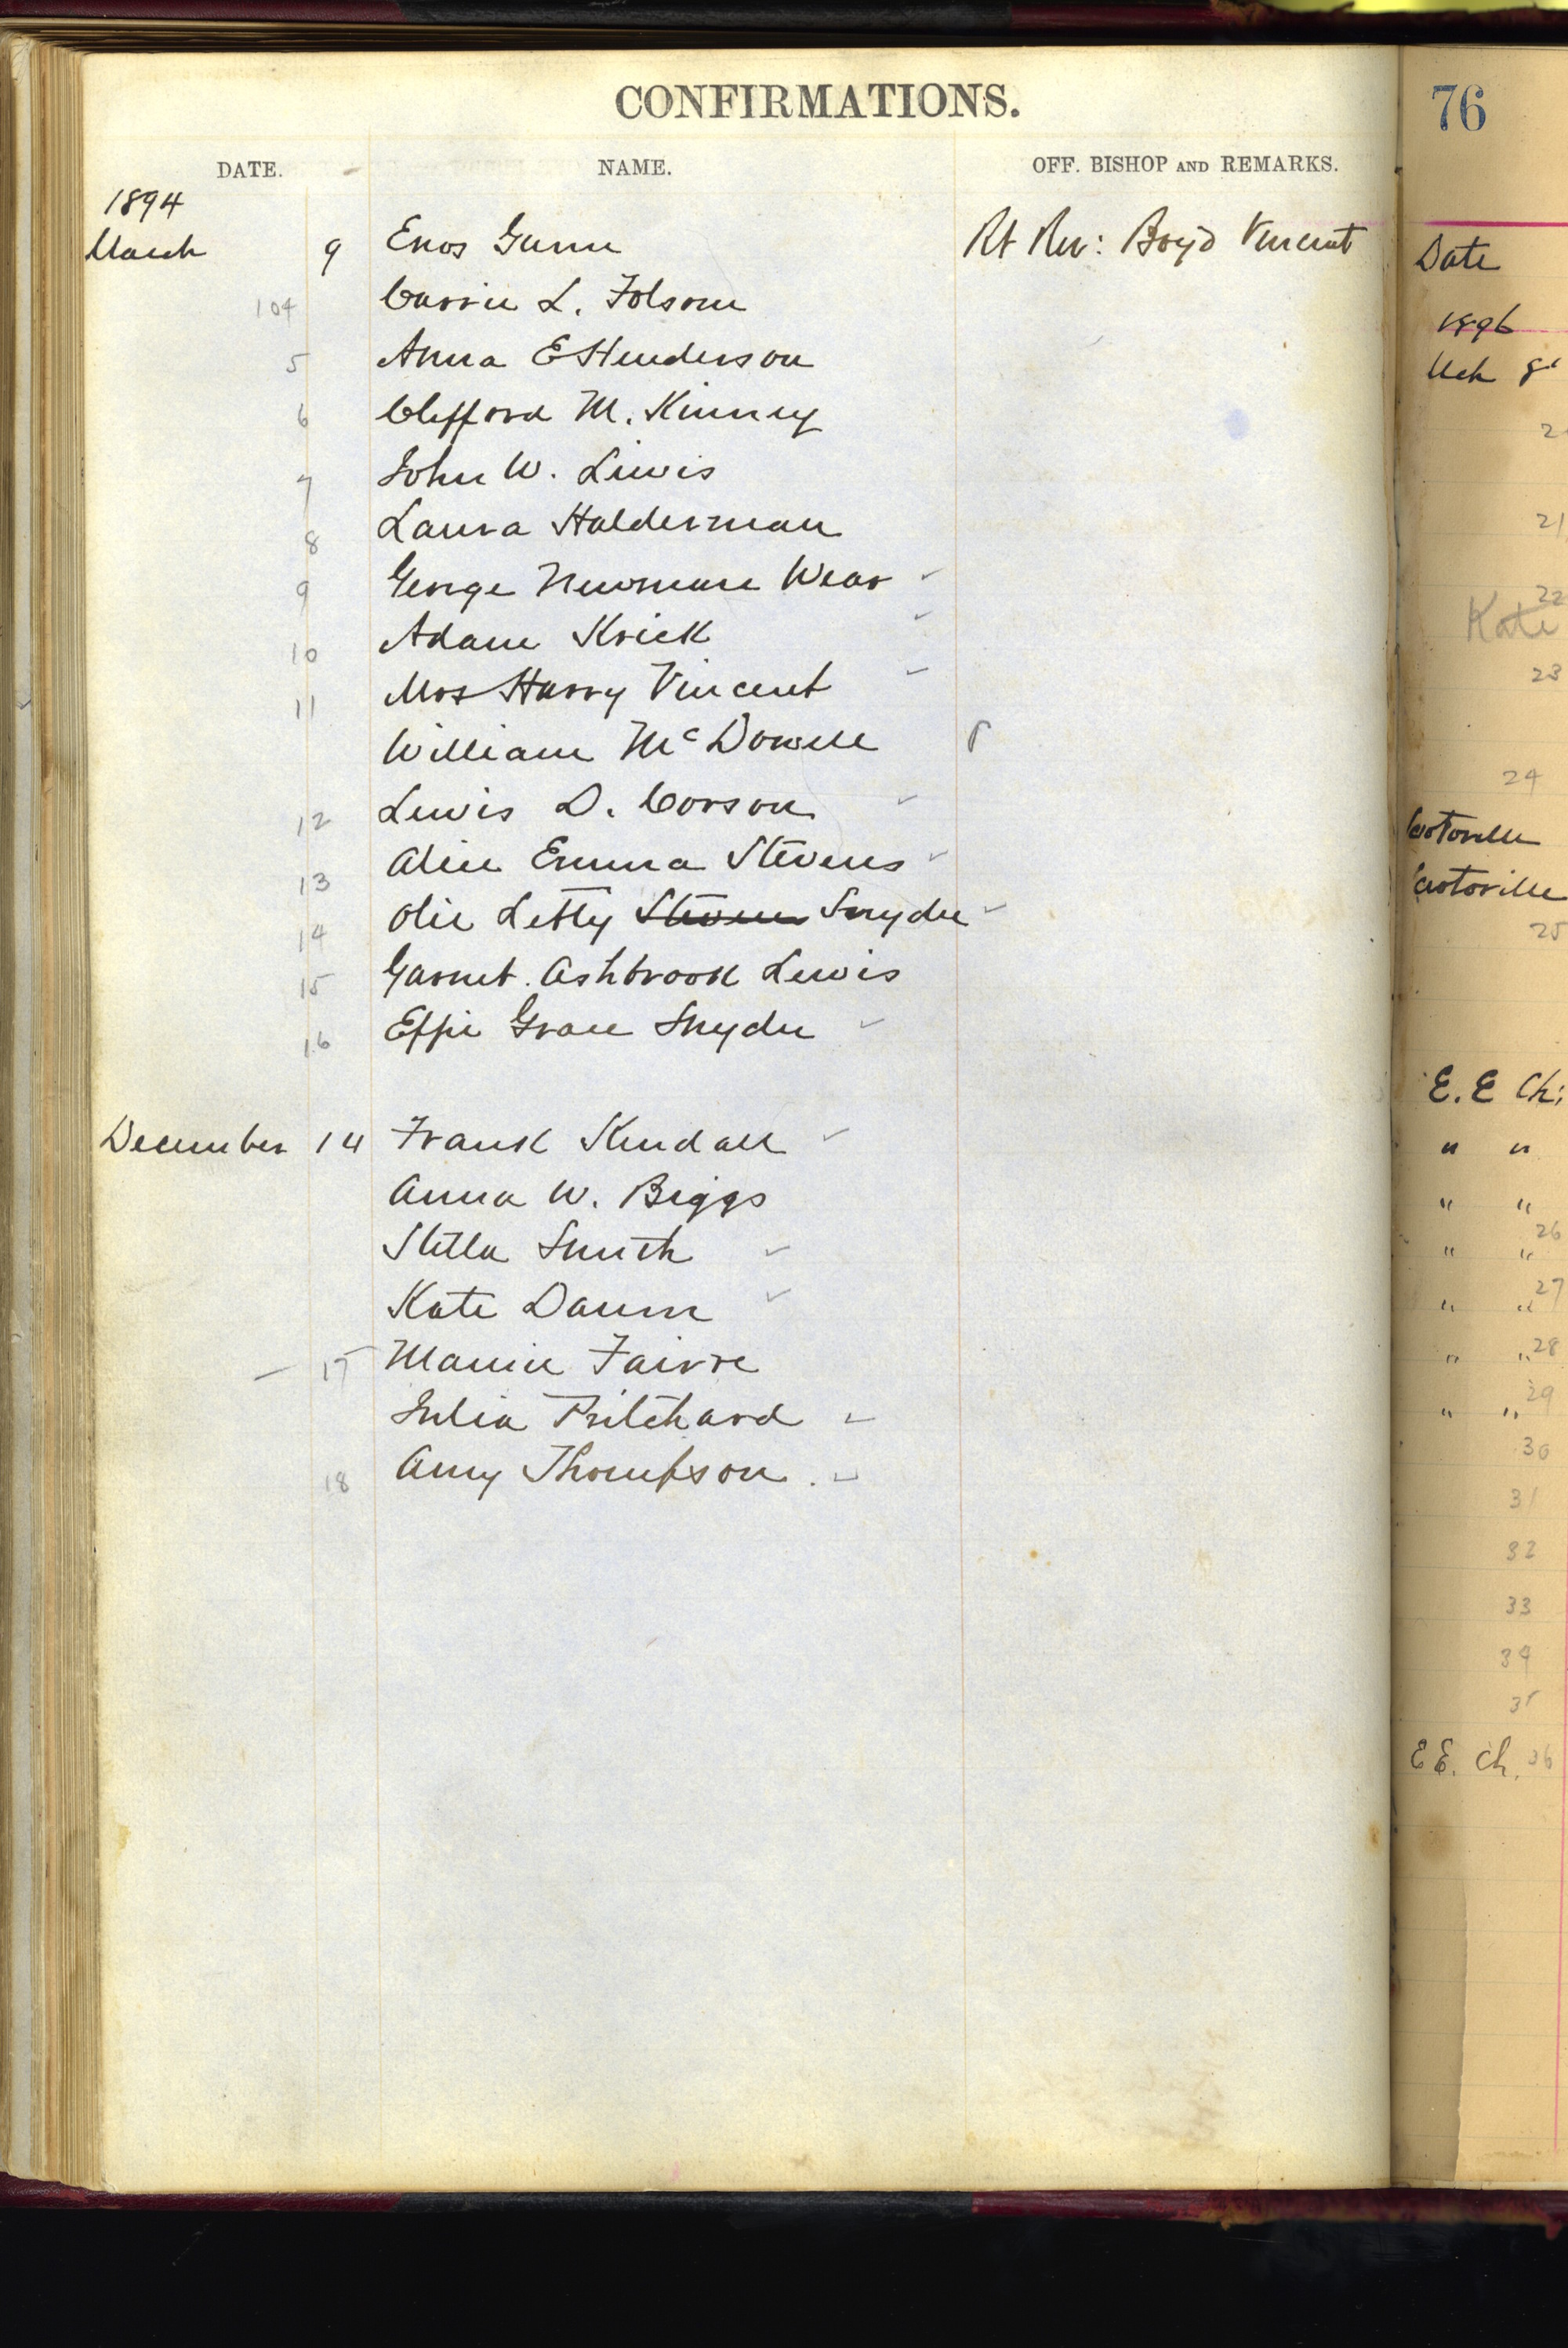 CONFIRMATIONS.
DATE. NAME. OFF. BISHOP AND REMARKS.
1894
March 9 Enos Gunn Rt Rev: Boyd Vincent
104 Carrie L. Folsom
5 Anna E Henderson
6 Clifford M. Kinney
7 John W. Lewis
8 Laura Halderman
9 George Newman Wear
10 Adam Krick
11 Mrs Harry Vincent
William McDowell
12 Lewis D. Corson
13 Alice Emma Stevens
14 Olie Letty Stevens Snyder
15 Garnet. Ashbrook Lewis
16 Effie Grace Snyder
December 14 Frank Kendall
Anna W. Biggs
Stella Smith
Kate Daum
17 Mamie Faivre
Julia Pritchard
18 Amy Thompson.
76
Date
1896
Mch 8
2
21
22
Kate
23
24
Sciotoville
Sciotoville
25
E. E Ch:
" "
" "
26
" "
27
" "
" " 28
" " 29
30
31
32
33
34
35
E E. Ch. 36